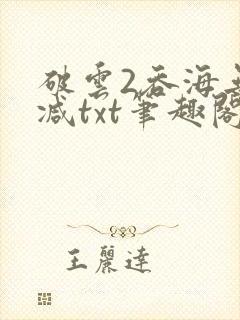 破雲2吞海無
減txt筆趣閣
王麗達